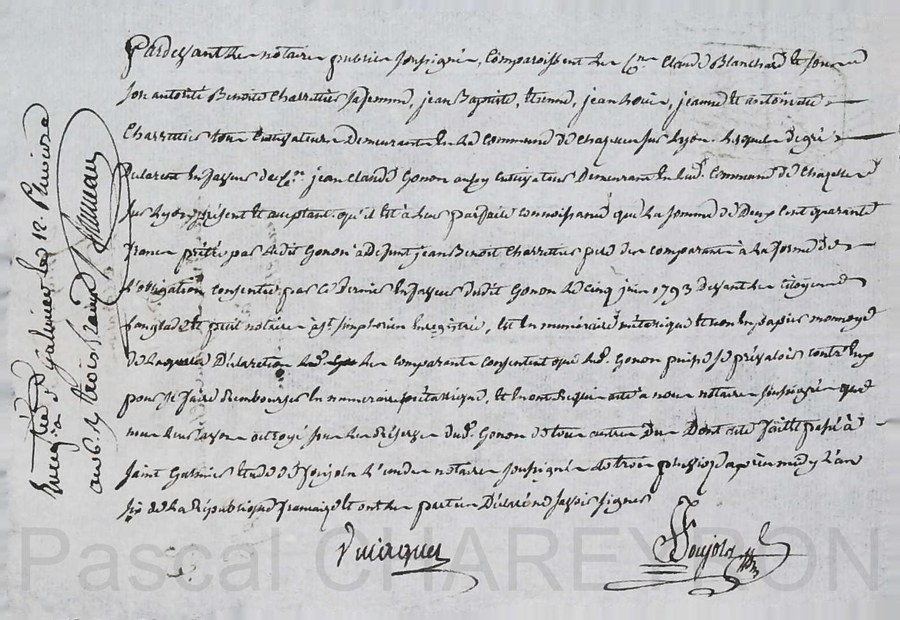 Pardevant les notaires publics soussignés, Comparoissent les Cns Claude Blanchard et sous
son autorité Benoite Charretier sa femme, jean Baptiste, Etienne, jean Louis, jeanne et antoinette
Charretier tous Cultivateurs Demeurants En La Commune de Chazelles sur Lyon Lesquels de gré
Declarent En faveur du Cn jean Claude Gonon aussy Cultivateur Demeurant En lad. Commune de Chazelles
sur Lyon présent et acceptant qu'il est à leur parfaite connoissance que La somme de Deux Cent quarante
francs prêtée par Ledit Gonon à deffunt jean Benoit Charretier pere des comparants à La forme de
L'obligation consentie par Ce Dernier En faveur dudit Gonon Le Cinq juin 1793 devant les Citoyens
Langlade et petit notaires à St Simphorien Enregistrée, Est En numéraire métallique et non En papier monnoye
de Laquelle Déclaration Les comparants consentent que Led. Gonon puisse se prévaloir contr'Eux
pour se faire Rembourser En numeraire métallique, Et En ont Requis acte à nous notaires soussignés que
nous Leur avons octroyé sous Les Réserves dud. Gonon de tous autres Dus Dont acte fait et passé à
Saint Galmier Etude de Poujola L'un des notaires soussignés Le trois pluviose après midy L'an
six de La République française et ont Les parties Déclaré ne savoir signer
Poujola
Enregistré à St Galmier Le 12 Pluviose
an 6. R. trois francs
Pascal CHAREYRON